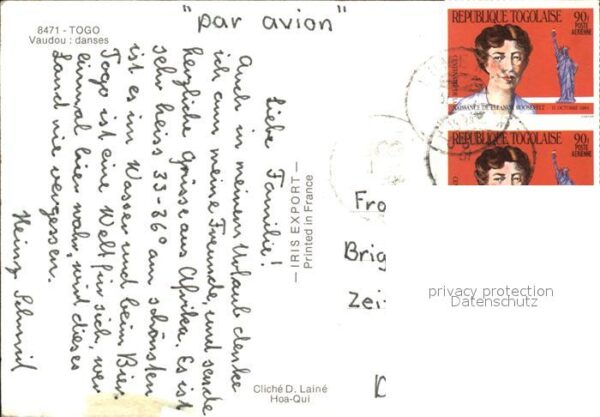 "par avion"
8471 - TOGO
Vaudou : danses
Liebe Familie!
Auch in meinem Urlaub denke
ich an meine Freunde, und sende
herzliche Grüsse aus Afrika. Es ist
sehr heiss 33-36° am schönsten
ist es im Wasser und beim Bier.
Togo ist eine Welt für sich, wer
einmal hier wahr, wird dieses
Land nie vergessen.
Heinz Schmid
— IRIS EXPORT —
Printed in France
Cliché D. Lainé
Hoa-Qui
REPUBLIQUE TOGOLAISE 90F
POSTE
AERIENNE
NAISSANCE DE ELEANOR ROOSEVELT - 11 OCTOBRE 1984
REPUBLIQUE TOGOLAISE 90F
POSTE
AERIENNE
Fro
Brig
Zei
D
privacy protection
Datenschutz